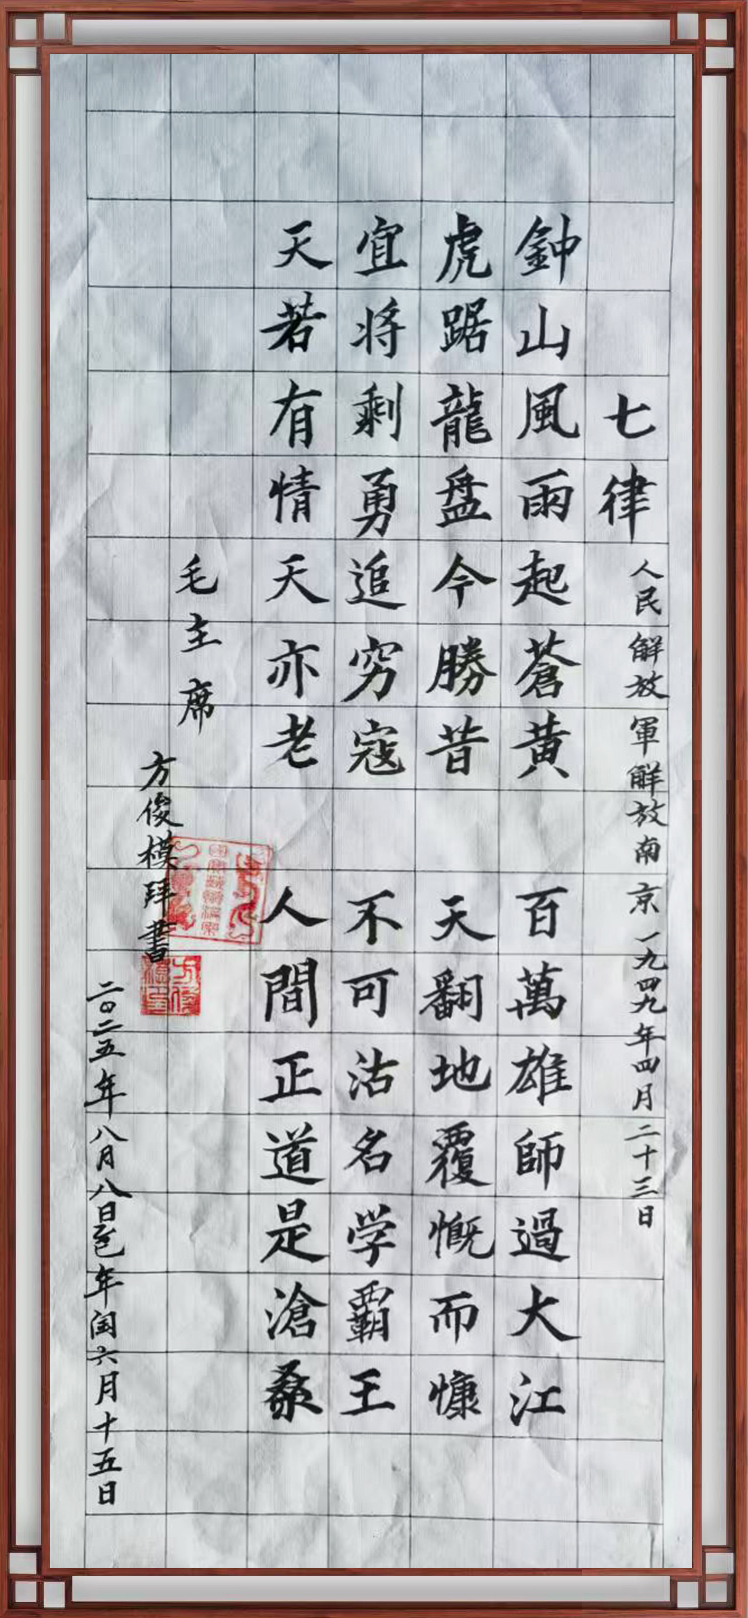 七律 人民解放軍解放南京一九四九年四月二十三日
鈡山風雨起蒼黃 百萬雄師過大江
虎踞龍盘今勝昔 天翻地覆慨而慷
宜将剩勇追穷寇 不可沽名学覇王
天若有情天亦老 人間正道是滄桑
毛主席
方俊模拜書
二〇二五年八月八日乙巳年闰六月十五日